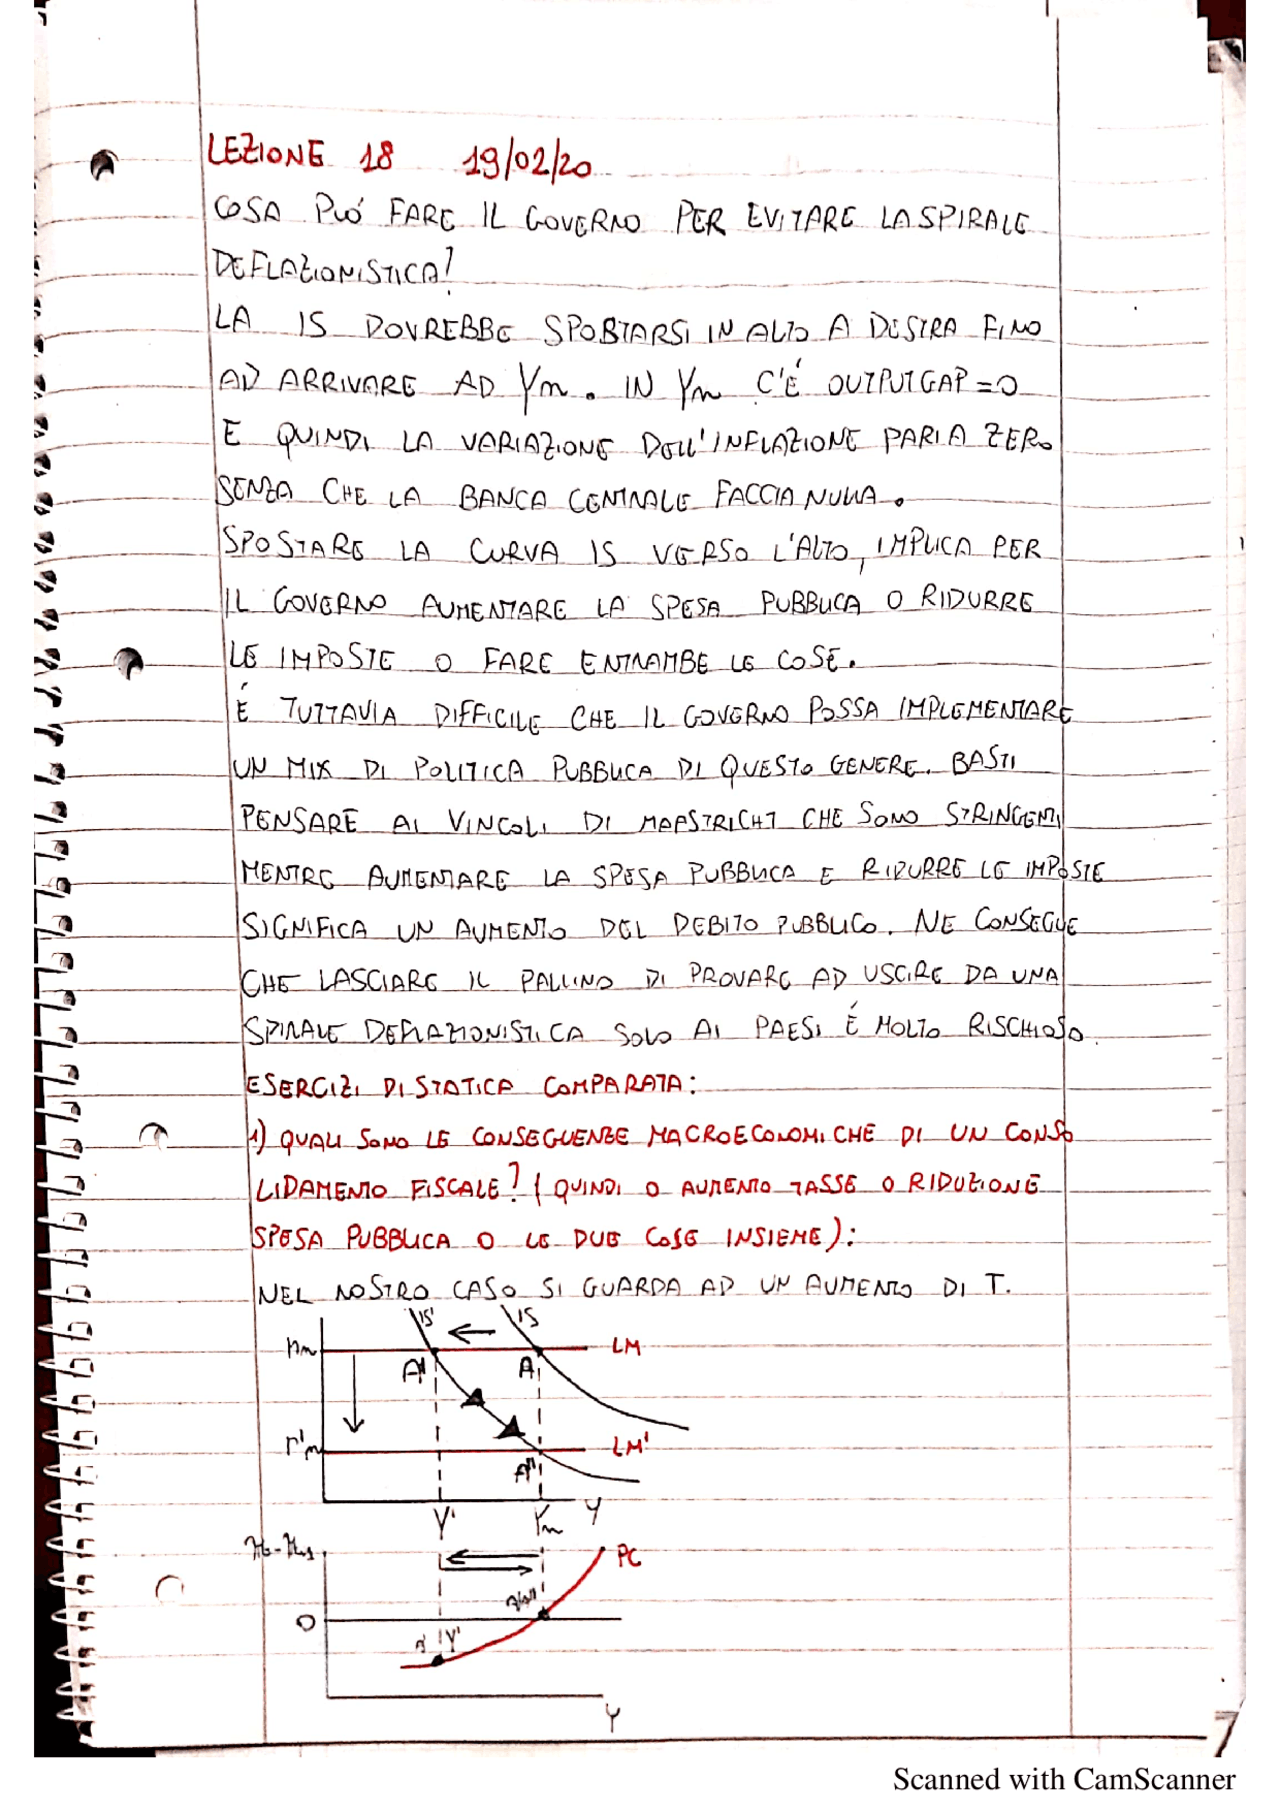 LEZIONE 18 19/02/20
COSA PUÓ FARE IL GOVERNO PER EVITARE LA SPIRALE
DEFLAZIONISTICA?
LA IS DOVREBBE SPOSTARSI IN ALTO A DESTRA FINO
AD ARRIVARE AD Yn. IN Yn C'É OUTPUT GAP=0
E QUINDI LA VARIAZIONE DELL'INFLAZIONE PARI A ZERO
SENZA CHE LA BANCA CENTRALE FACCIA NULLA.
SPOSTARE LA CURVA IS VERSO L'ALTO, IMPLICA PER
IL GOVERNO AUMENTARE LA SPESA PUBBLICA O RIDURRE
LE IMPOSTE O FARE ENTRAMBE LE COSE.
É TUTTAVIA DIFFICILE CHE IL GOVERNO POSSA IMPLEMENTARE
UN MIX DI POLITICA PUBBLICA DI QUESTO GENERE. BASTI
PENSARE AI VINCOLI DI MAASTRICHT CHE SONO STRINGENTI
MENTRE AUMENTARE LA SPESA PUBBLICA E RIDURRE LE IMPOSTE
SIGNIFICA UN AUMENTO DEL DEBITO PUBBLICO. NE CONSEGUE
CHE LASCIARE IL PALLINO DI PROVARE AD USCIRE DA UNA
SPIRALE DEFLAZIONISTICA SOLO AI PAESI É MOLTO RISCHIOSO.
ESERCIZI DI STATICA COMPARATA:
1) QUALI SONO LE CONSEGUENZE MACROECONOMICHE DI UN CONSO
LIDAMENTO FISCALE? (QUINDI O AUMENTO TASSE O RIDUZIONE
SPESA PUBBLICA O LE DUE COSE INSIEME):
NEL NOSTRO CASO SI GUARDA AD UN AUMENTO DI T.
IS' IS
rn LM
A' A
r'n LM'
A''
Y' Yn Y
πt-πt-1 PC
0
A' Y'
Y
Scanned with CamScanner